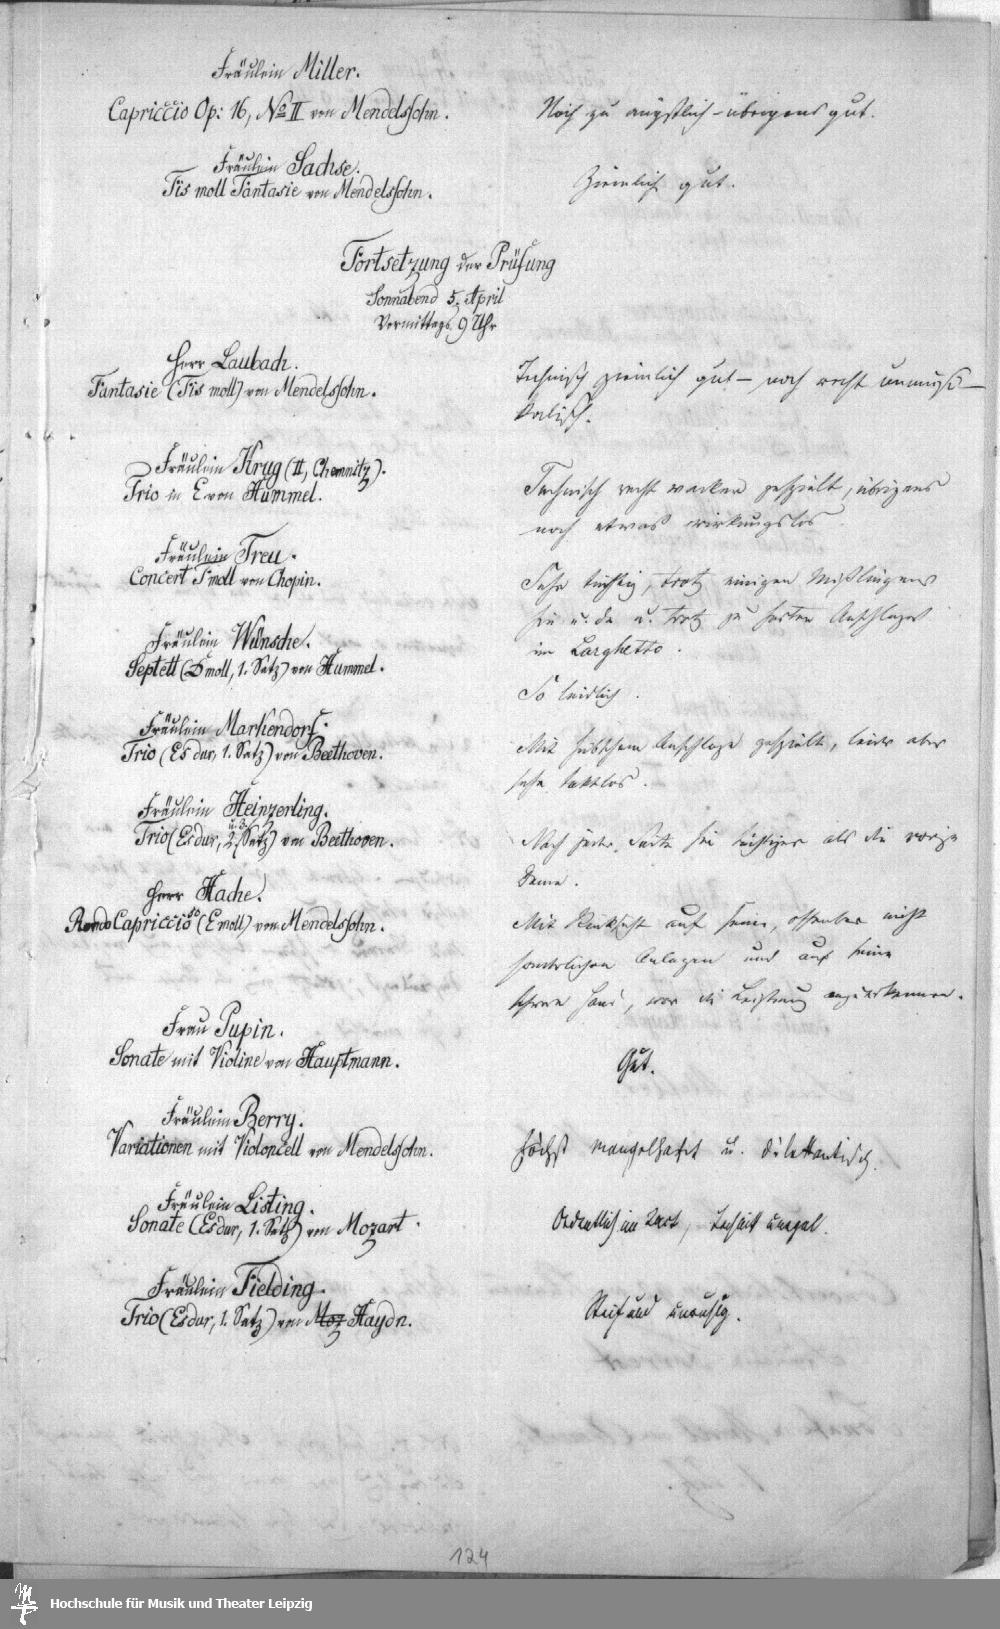 Fräulein Miller.
Capriccio Op: 16, No II von Mendelssohn.
Noch zu ängstlich – übrigens gut.
Fräulein Sachse.
Fis moll Fantasie von Mendelssohn.
Ziemlich gut.
Fortsetzung der Prüfung
Sonnabend 5. April
Vormittags 9 Uhr
Herr Laubach.
Fantasie (Fis moll) von Mendelssohn.
Technisch ziemlich gut – noch recht unmusi-
kalisch.
Fräulein Krug (II, Chemnitz).
Trio in E von Hummel.
Technisch recht wacker gespielt, übrigens
noch etwas wirkungslos.
Fräulein Treu.
Concert F moll von Chopin.
Sehr tüchtig, trotz einigen Mißlingens
hie u. da u. trotz zu harten Anschlages
im Larghetto.
Fräulein Wünsche.
Septett (D moll, 1. Satz) von Hummel.
So leidlich.
Fräulein Markendorf.
Trio (Es dur, 1. Satz) von Beethoven.
Mit hübschem Anschlage gespielt, leider aber
sehr taktlos.
Fräulein Heinzerling.
Trio (Es dur, 2. u. 3. Satz) von Beethoven.
Nach jeder Seite hin tüchtiger als die vorige
Dame.
Herr Hache.
Rondo Capriccioso (E moll) von Mendelssohn.
Mit Rücksicht auf seine, offenbar nicht
sonderlichen Anlagen und auf seine
schwere Hand, war die Leistung anzuerkennen.
Frau Pupin.
Sonate mit Violine von Hauptmann.
Gut.
Fräulein Berry.
Variationen mit Violoncell von Mendelssohn.
Höchst mangelhaft u. dilettantisch.
Fräulein Listing.
Sonate (Es dur, 1. Satz) von Mozart.
Ordentlich im Takt, Technik ungel.
Fräulein Fielding.
Trio (Es dur, 1. Satz) von Moz Haydn.
Steif und unruhig.
124
Hochschule für Musik und Theater Leipzig